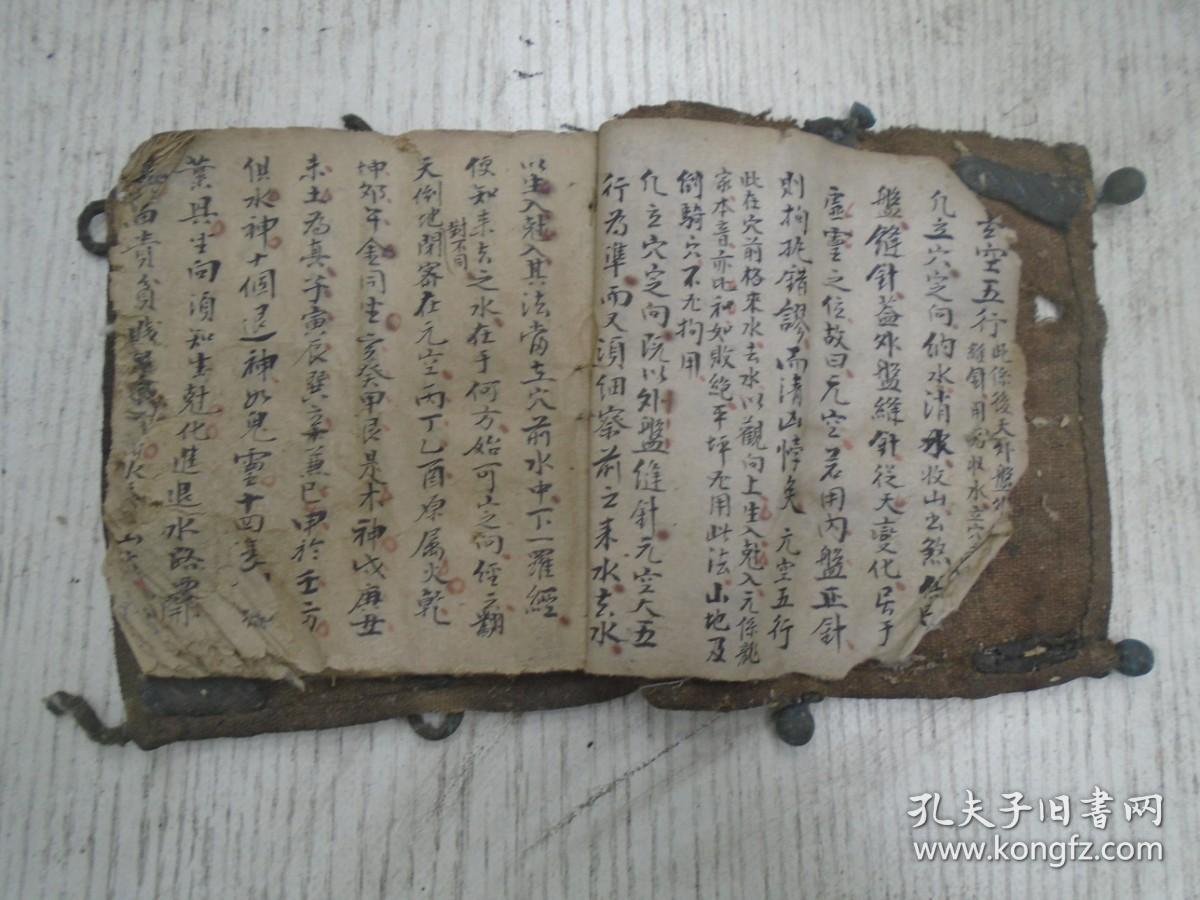 玄空五行此係後天外盤
縫針用収水立穴
凢立穴定向納水清水收山出煞
盤縫針蓋外盤縫針從天變化居于
虛靈之位故曰元空若用內盤正針
則拘扼錯謬而清凶悖矣 元空五行
此在穴前格來水去水以觀向上生入尅入元係龍
家本音亦比和如敗絕平坪不用此法山地及
倒騎穴不尤拘用
凢立穴定向院以外盤縫針元空大五
行為準而又須細察前之来水去水
以生入尅入其法當立穴前水中下一羅經
便知来去之水在于何方始可定向經云翻
天倒地對不同関竅在元空丙丁乙酉原属火乾
坤夘午金同生亥癸甲艮是木神戌庚丑
未土為真子寅辰巽辛兼巳申於壬方
俱水神十個退神如鬼靈十四
業具生向須知生尅化進退水路
富貴貧賤